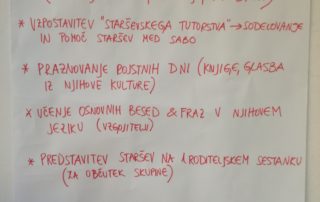 * VZPOSTAVITEV "STARŠEVSKEGA TUTORSTVA" → SODELOVANJE
IN POMOČ STARŠEV MED SABO
* PRAZNOVANJE ROJSTNIH DNI (KNJIGE, GLASBA
IZ NJIHOVE KULTURE)
* UČENJE OSNOVNIH BESED & FRAZ V NJIHOVEM
JEZIKU (VZGOJITELJI)
* PREDSTAVITEV STARŠEV NA 1. RODITELJSKEM SESTANKU
(ZA OBČUTEK SKUPINE)